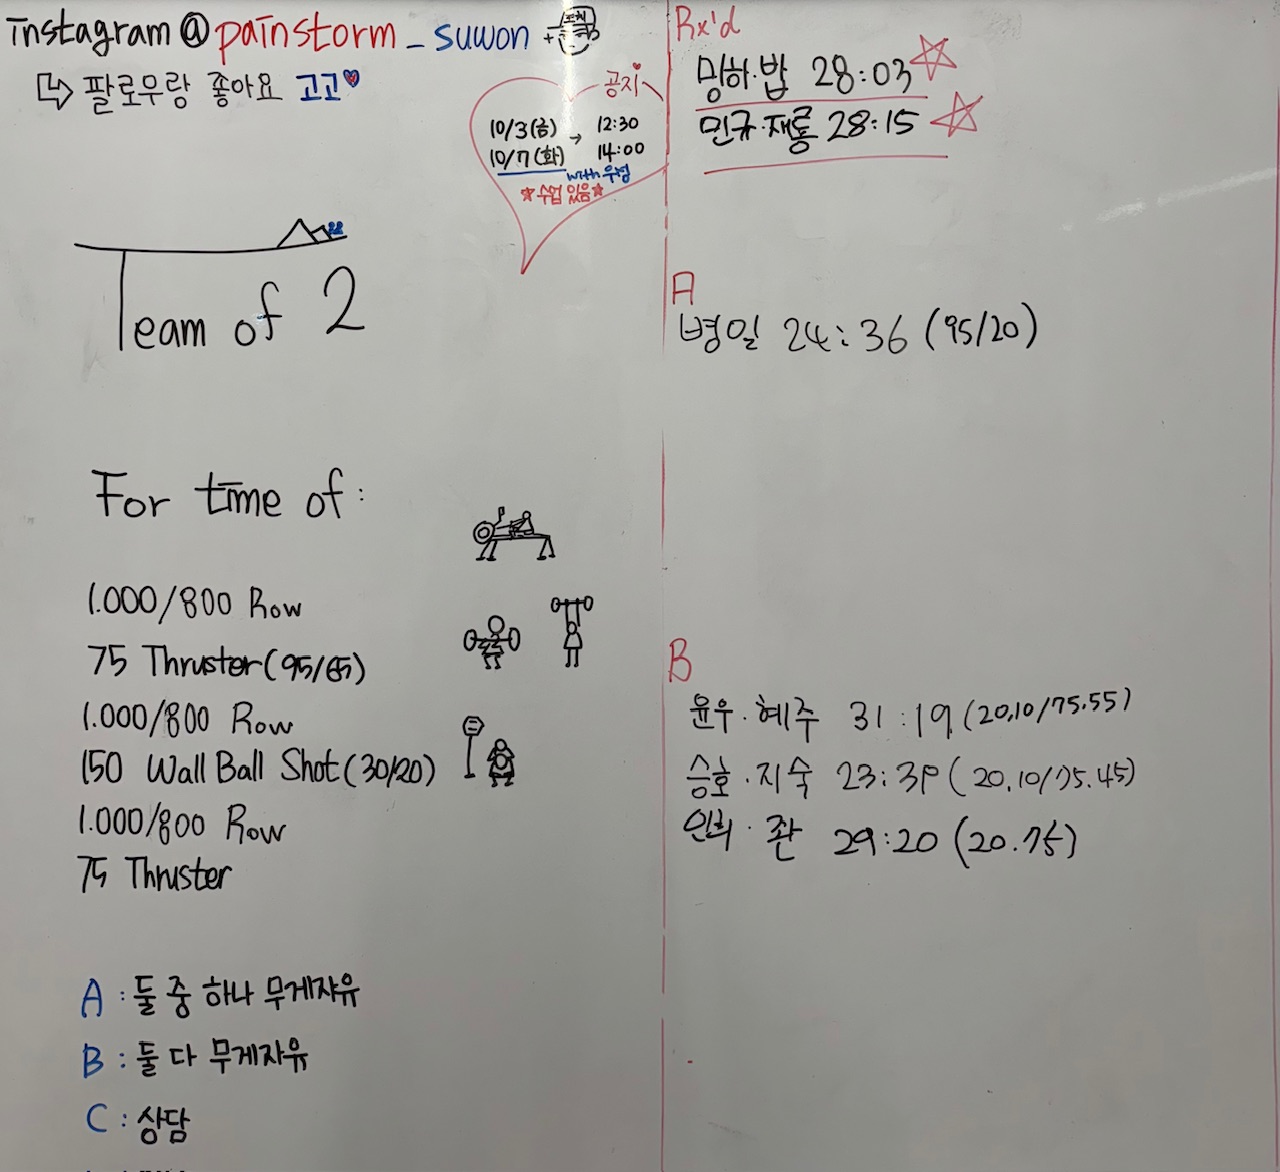 instagram @ painstorm_suwon +
↳ 팔로우랑 좋아요 고고♥
공지
10/3(금) → 12:30
10/7(화) 14:00
with 우성
☆수업 있음☆
Team of 2
For time of:
1.000/800 Row
75 Thruster(95/65)
1.000/800 Row
150 Wall Ball Shot(30/20)
1.000/800 Row
75 Thruster
A : 둘 중 하나 무게자유
B : 둘 다 무게자유
C : 상담
Rx'd
밍하·밥 28:03 ☆
민규·재롱 28:15 ☆
A
병일 24:36 (95/20)
B
윤우·혜주 31:19 (20.10/75.55)
승호·지숙 23:39 (20.10/75.45)
인희· 29:20 (20.75)